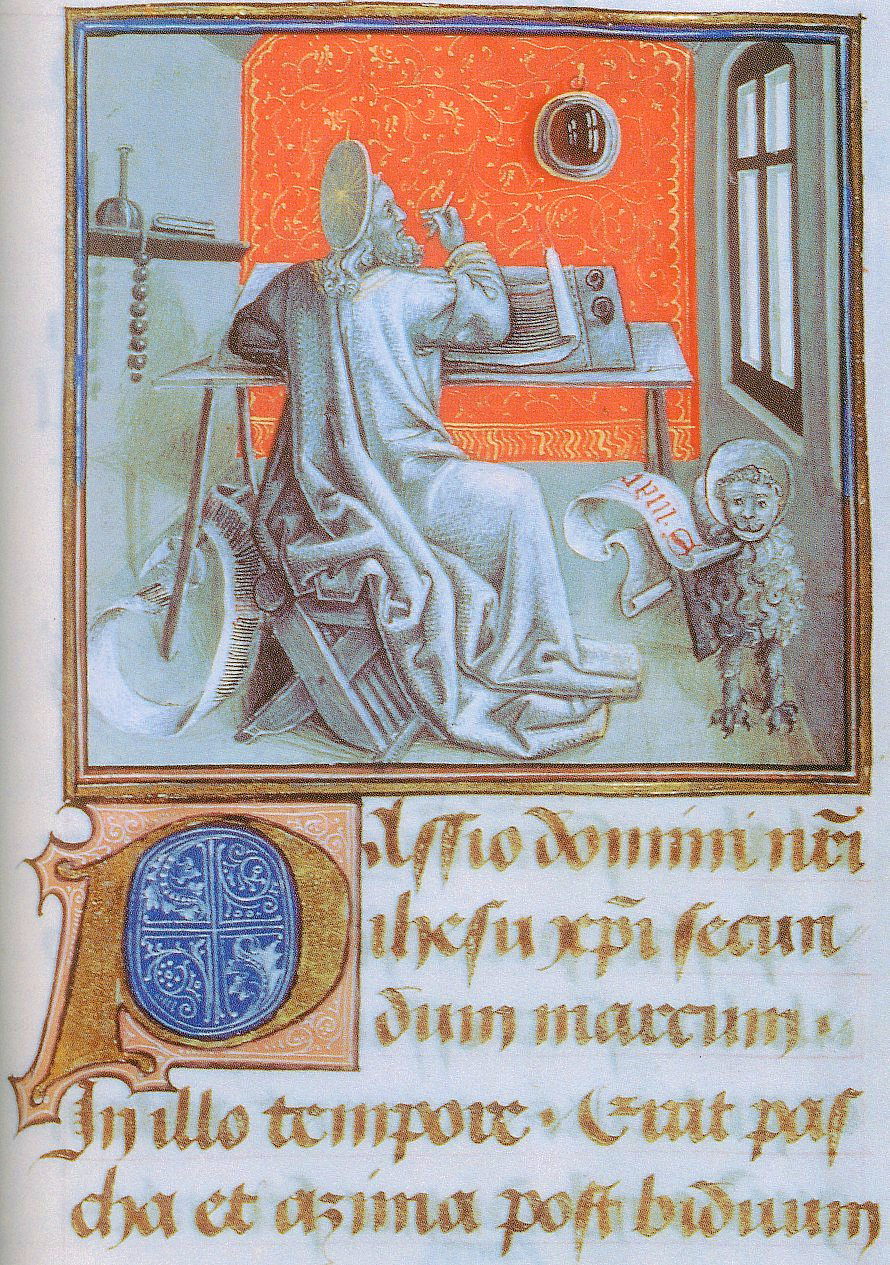 S. mar
Passio domini nr̄i
ihesu xp̄i secun
dum marcum.
In illo tempore. Erat pas
cha et azima post biduum